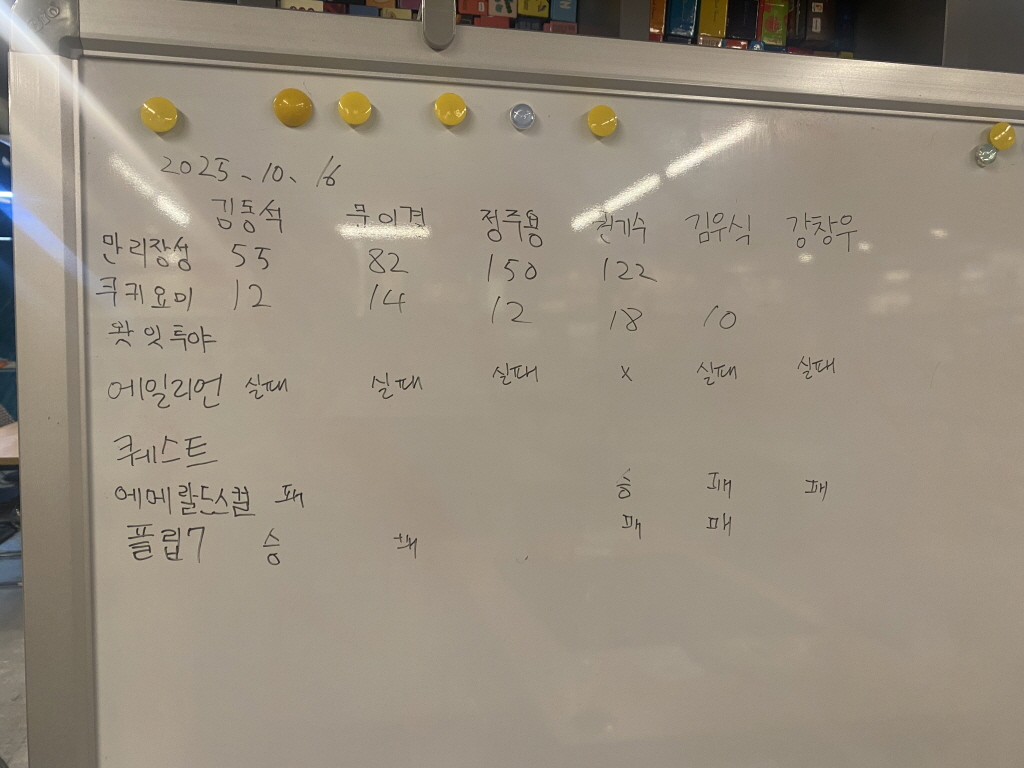 2025、10、16
김동석 무이경 정주용 천기수 김우식 강창우
만리장성 55 82 150 122
쿠키요미 12 14 12 18 10
왓잇투야
에일리언 실패 실패 실패 x 실패 실패
퀘스트
에메랄드스컬 패 승 패 패
플립7 승 패 패 패